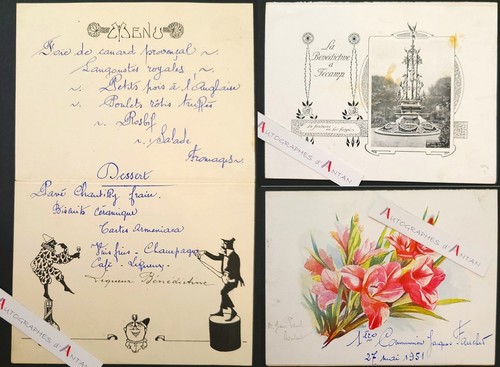 MENU
Foie de canard provençal
Langoustes royales
Petits pois à l'Anglaise
Poulets rôtis truffés
Rosbif
Salade
Fromages
Dessert
Pavé Chantilly fraise
Biscuits Céramique
Tartes Armeniara
Vins fins - Champagne
Café - Liqueurs
Liqueur Bénédictine
AUTOGRAPHES d'ANTAN
La
Bénédictine
à
Fécamp.
La fontaine
AUTOGRAPHES d'ANTAN
AUTOGRAPHES d'ANTAN
1ère Communion Jacques
27 mai 1951